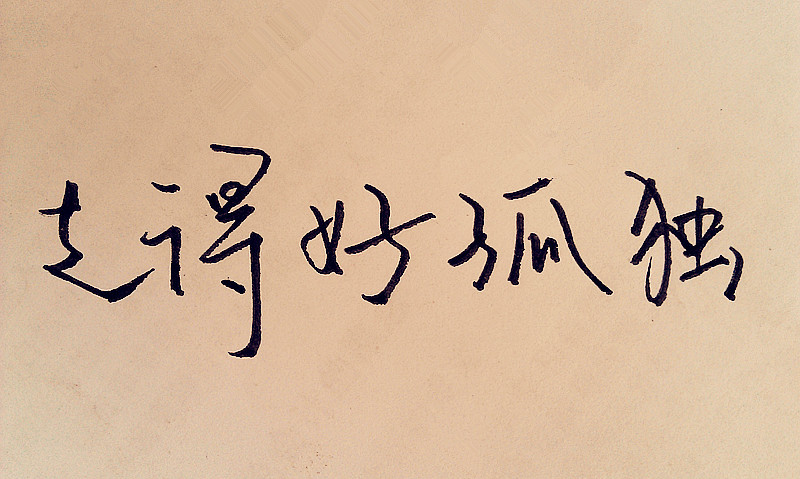 走得好孤独